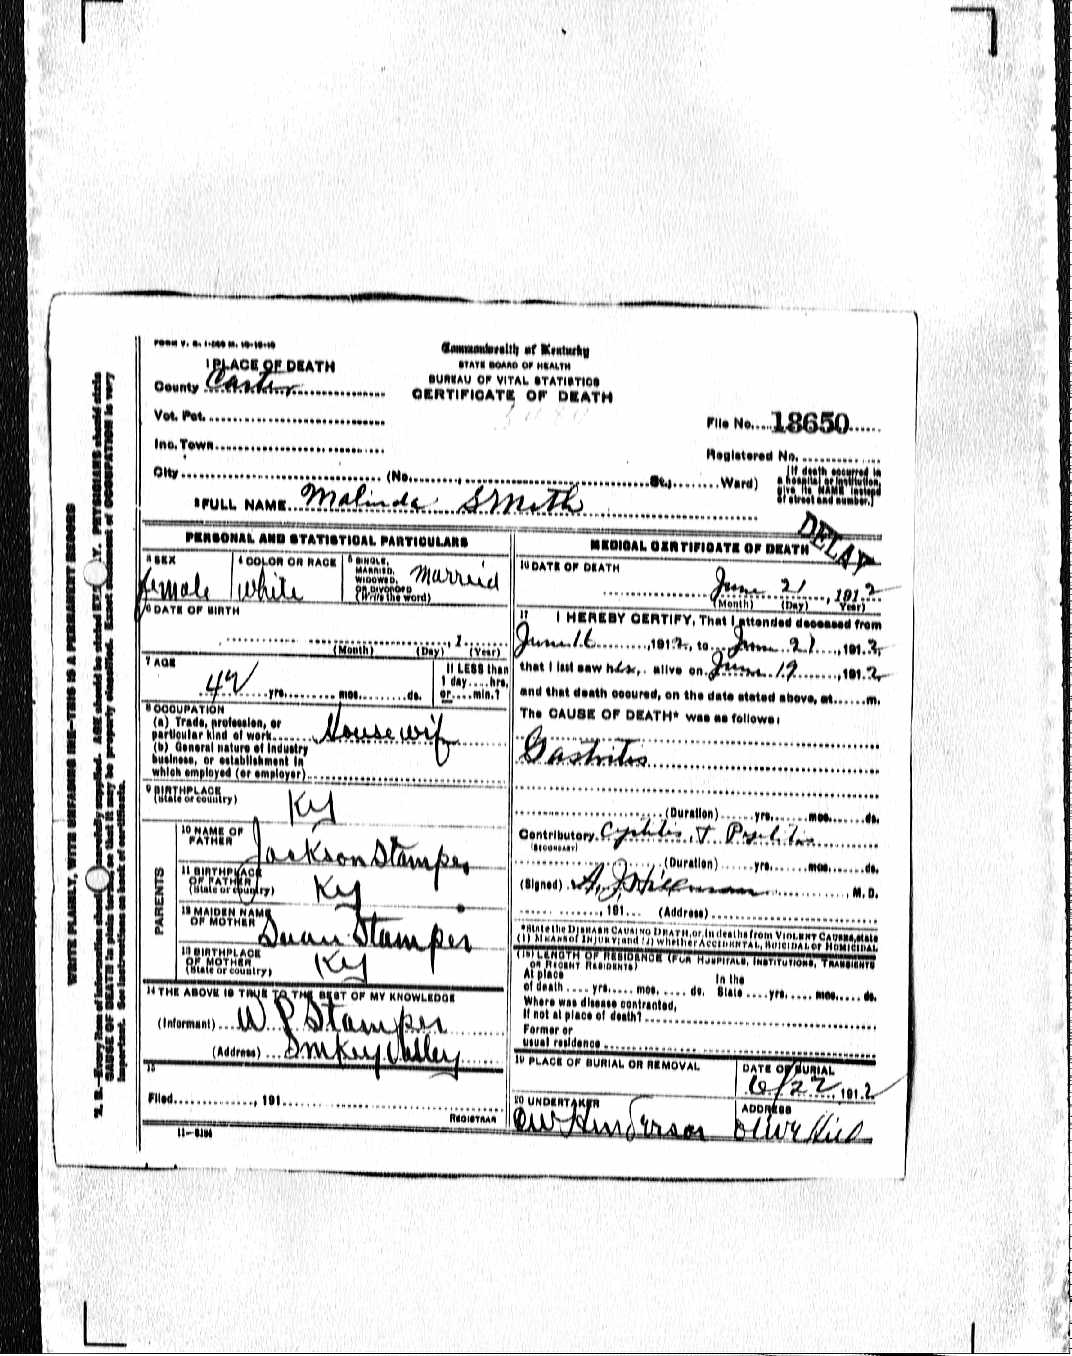 FORM V. S. 1-200 M. 10-18-10
Commonwealth of Kentucky
STATE BOARD OF HEALTH
BUREAU OF VITAL STATISTICS
CERTIFICATE OF DEATH
1 PLACE OF DEATH
County Carter
Vot. Pct.
Inc. Town
City (No. , St.; Ward)
File No. 18650
Registered No.
[If death occurred in
a hospital or institution,
give its NAME instead
of street and number.]
2 FULL NAME Malinda Smith
DELAY
PERSONAL AND STATISTICAL PARTICULARS
3 SEX
female
4 COLOR OR RACE
white
5 SINGLE,
MARRIED,
WIDOWED,
OR DIVORCED
(Write the word)
Marreid
6 DATE OF BIRTH
, 1
(Month) (Day) (Year)
7 AGE
42 yrs. mos. ds.
If LESS than
1 day....hrs.
or....min.?
8 OCCUPATION
(a) Trade, profession, or
particular kind of work Housewif
(b) General nature of industry
business, or establishment in
which employed (or employer)
9 BIRTHPLACE
(State or country)
Ky
PARENTS
10 NAME OF
FATHER
Jackson Stamper
11 BIRTHPLACE
OF FATHER
(State or country)
Ky
12 MAIDEN NAME
OF MOTHER
Susan Stamper
13 BIRTHPLACE
OF MOTHER
(State or country)
Ky
14 THE ABOVE IS TRUE TO THE BEST OF MY KNOWLEDGE
(Informant) W P Stamper
(Address) Smkey Valley
15
Filed , 191
REGISTRAR
11-5184
MEDICAL CERTIFICATE OF DEATH
16 DATE OF DEATH
June 21, 1912
(Month) (Day) (Year)
17 I HEREBY CERTIFY, That I attended deceased from
June 16, 1912, to June 21, 1912,
that I last saw her alive on June 19, 1912
and that death occured, on the date stated above, at......m.
The CAUSE OF DEATH* was as follows:
Gastritis
(Duration) yrs. mos. ds.
Contributory Cystitis &
(SECONDARY)
(Duration) yrs. mos. ds.
(Signed) A. J. Hillman, M. D.
, 191 (Address)
*State the DISEASE CAUSING DEATH, or, in deaths from VIOLENT CAUSES, state
(1) MEANS OF INJURY; and (2) whether ACCIDENTAL, SUICIDAL or HOMICIDAL
(18) LENGTH OF RESIDENCE (FOR HOSPITALS, INSTITUTIONS, TRANSIENTS
OR RECENT RESIDENTS)
At place In the
of death yrs. mos. ds. State yrs. mos. ds.
Where was disease contracted,
If not at place of death?
Former or
usual residence
19 PLACE OF BURIAL OR REMOVAL
DATE OF BURIAL
6/22, 1912
20 UNDERTAKER
OW Hinderson
ADDRESS
Olive Hill
WRITE PLAINLY, WITH UNFADING INK—THIS IS A PERMANENT RECORD
N. B.—Every item of information should be carefully supplied. AGE should be stated EXACTLY. PHYSICIANS should state
CAUSE OF DEATH in plain terms, so that it may be properly classified. Exact statement of OCCUPATION is very
important. See instructions on back of certificate.